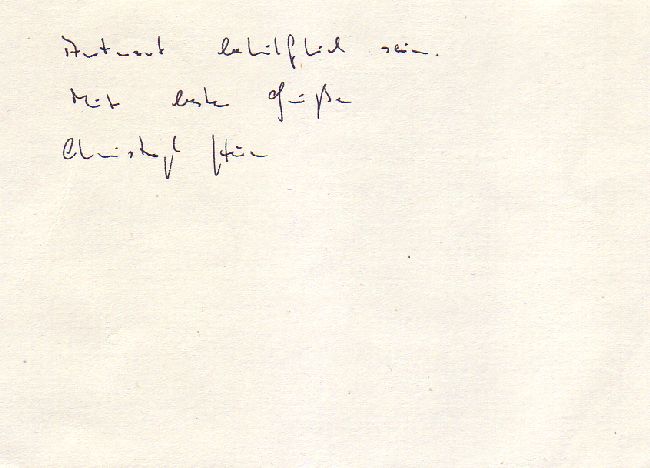 Antwort behilflich sein.
Mit besten Grüßen
Christoph